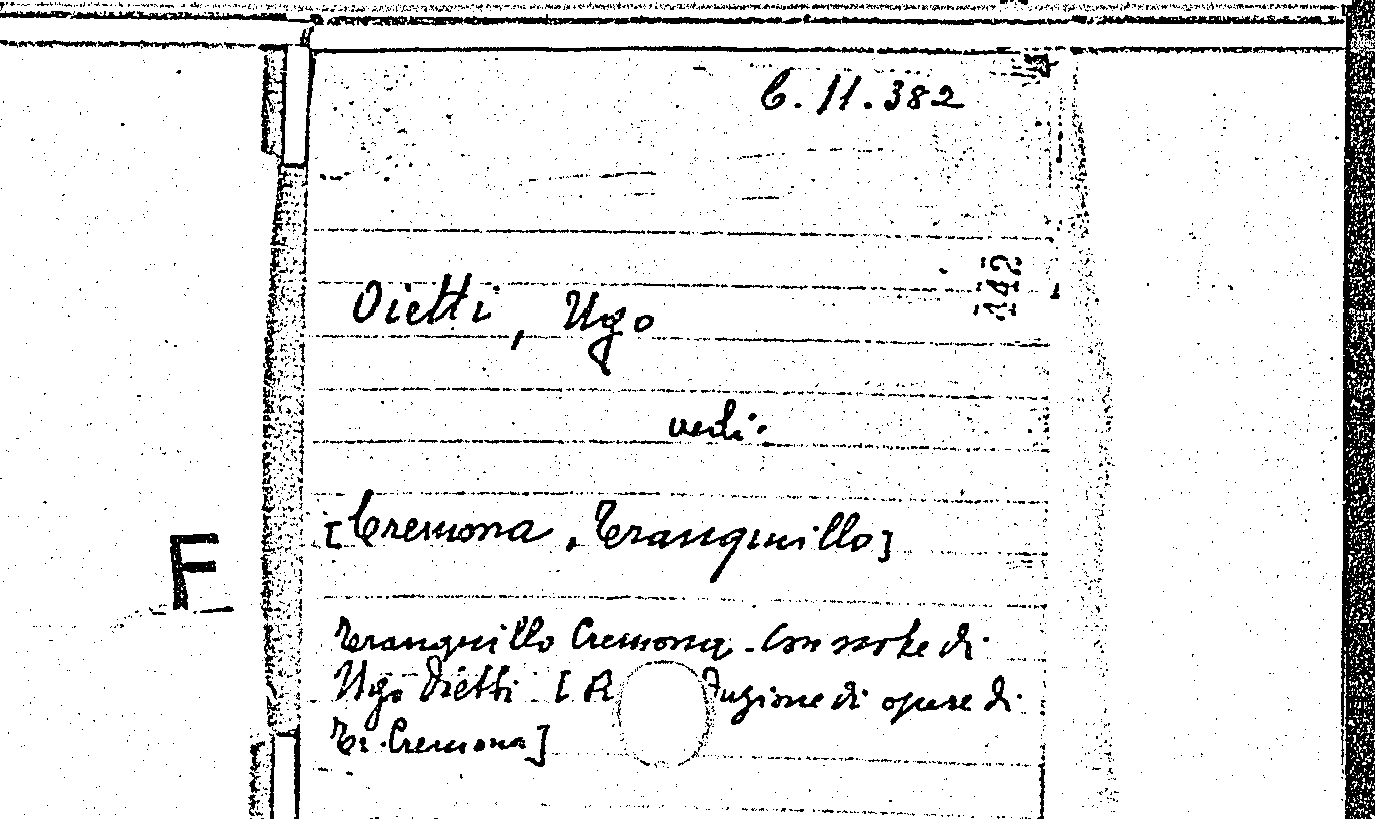 C. 11. 382
142
Oietti, Ugo
vedi:
[Cremona, Tranquillo]
F
Tranquillo Cremona. Con note di
Ugo Oietti [R duzione di opere di
Tr. Cremona]